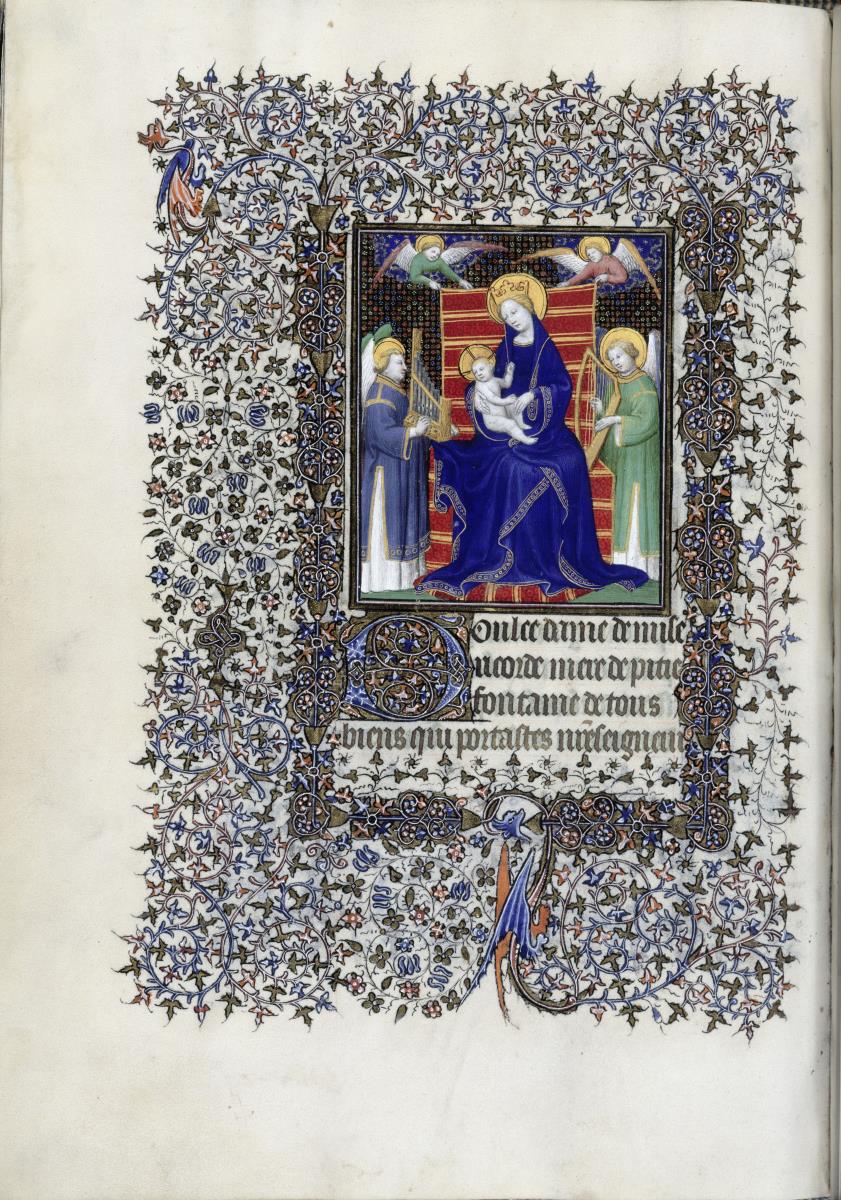 Doulce dame de mise
ricorde mere de pitie
fontaine de tous
biens qui portastes nr̃eseigneur